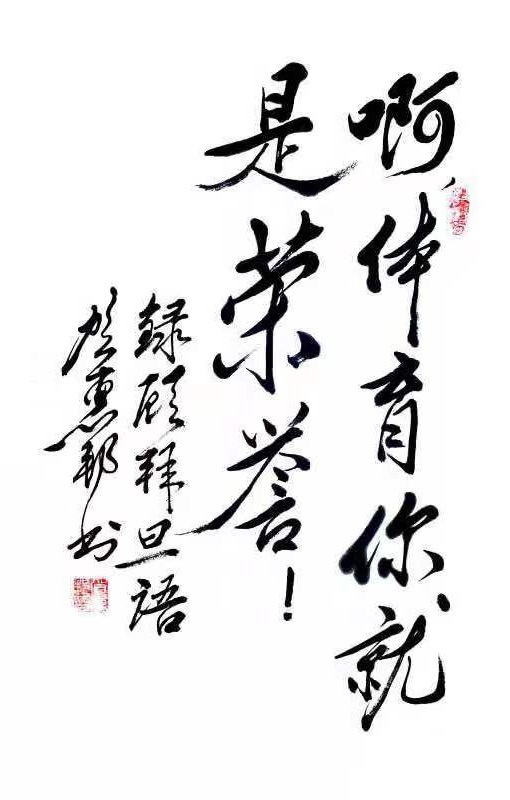 啊，体育你就
是荣誉！
録顾拜旦語
於惠书